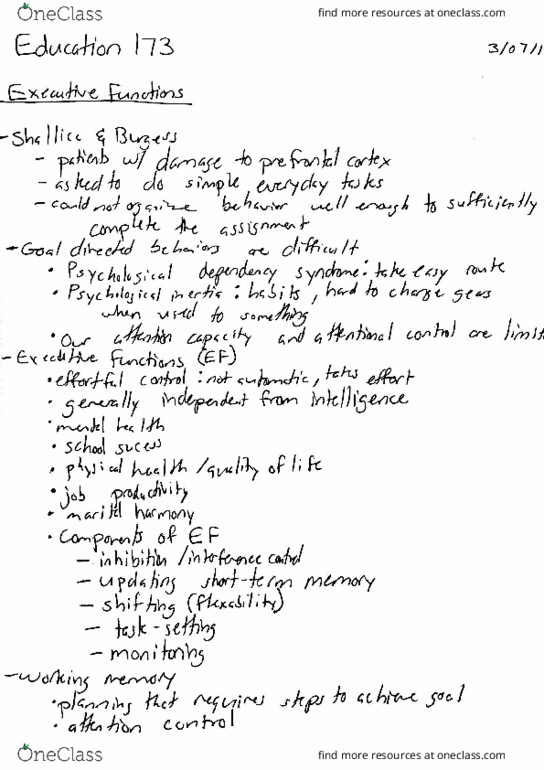 OneClass
find more resources at oneclass.com
Education 173
3/07/1
Executive Functions
- Shallice & Burgess
- patients w/ damage to prefrontal cortex
- asked to do simple, everyday tasks
- could not organize behavior well enough to sufficiently
complete the assignment
- Goal directed behaviors are difficult
• Psychological dependency syndrome: take easy route
• Psychological inertia: habits, hard to change gears
when used to something
• Our attention capacity and attentional control are limit
- Executive Functions (EF)
• effortful control: not automatic, takes effort
• generally independent from intelligence
• mental health
• school sucess
• physical health / quality of life
• job productivity
• marital harmony
• Components of EF
- inhibition / interference control
- updating short-term memory
- shifting (flexability)
- task-setting
- monitoring
- Working memory
• planning that requires steps to achieve goal
• attention control
OneClass
find more resources at oneclass.com